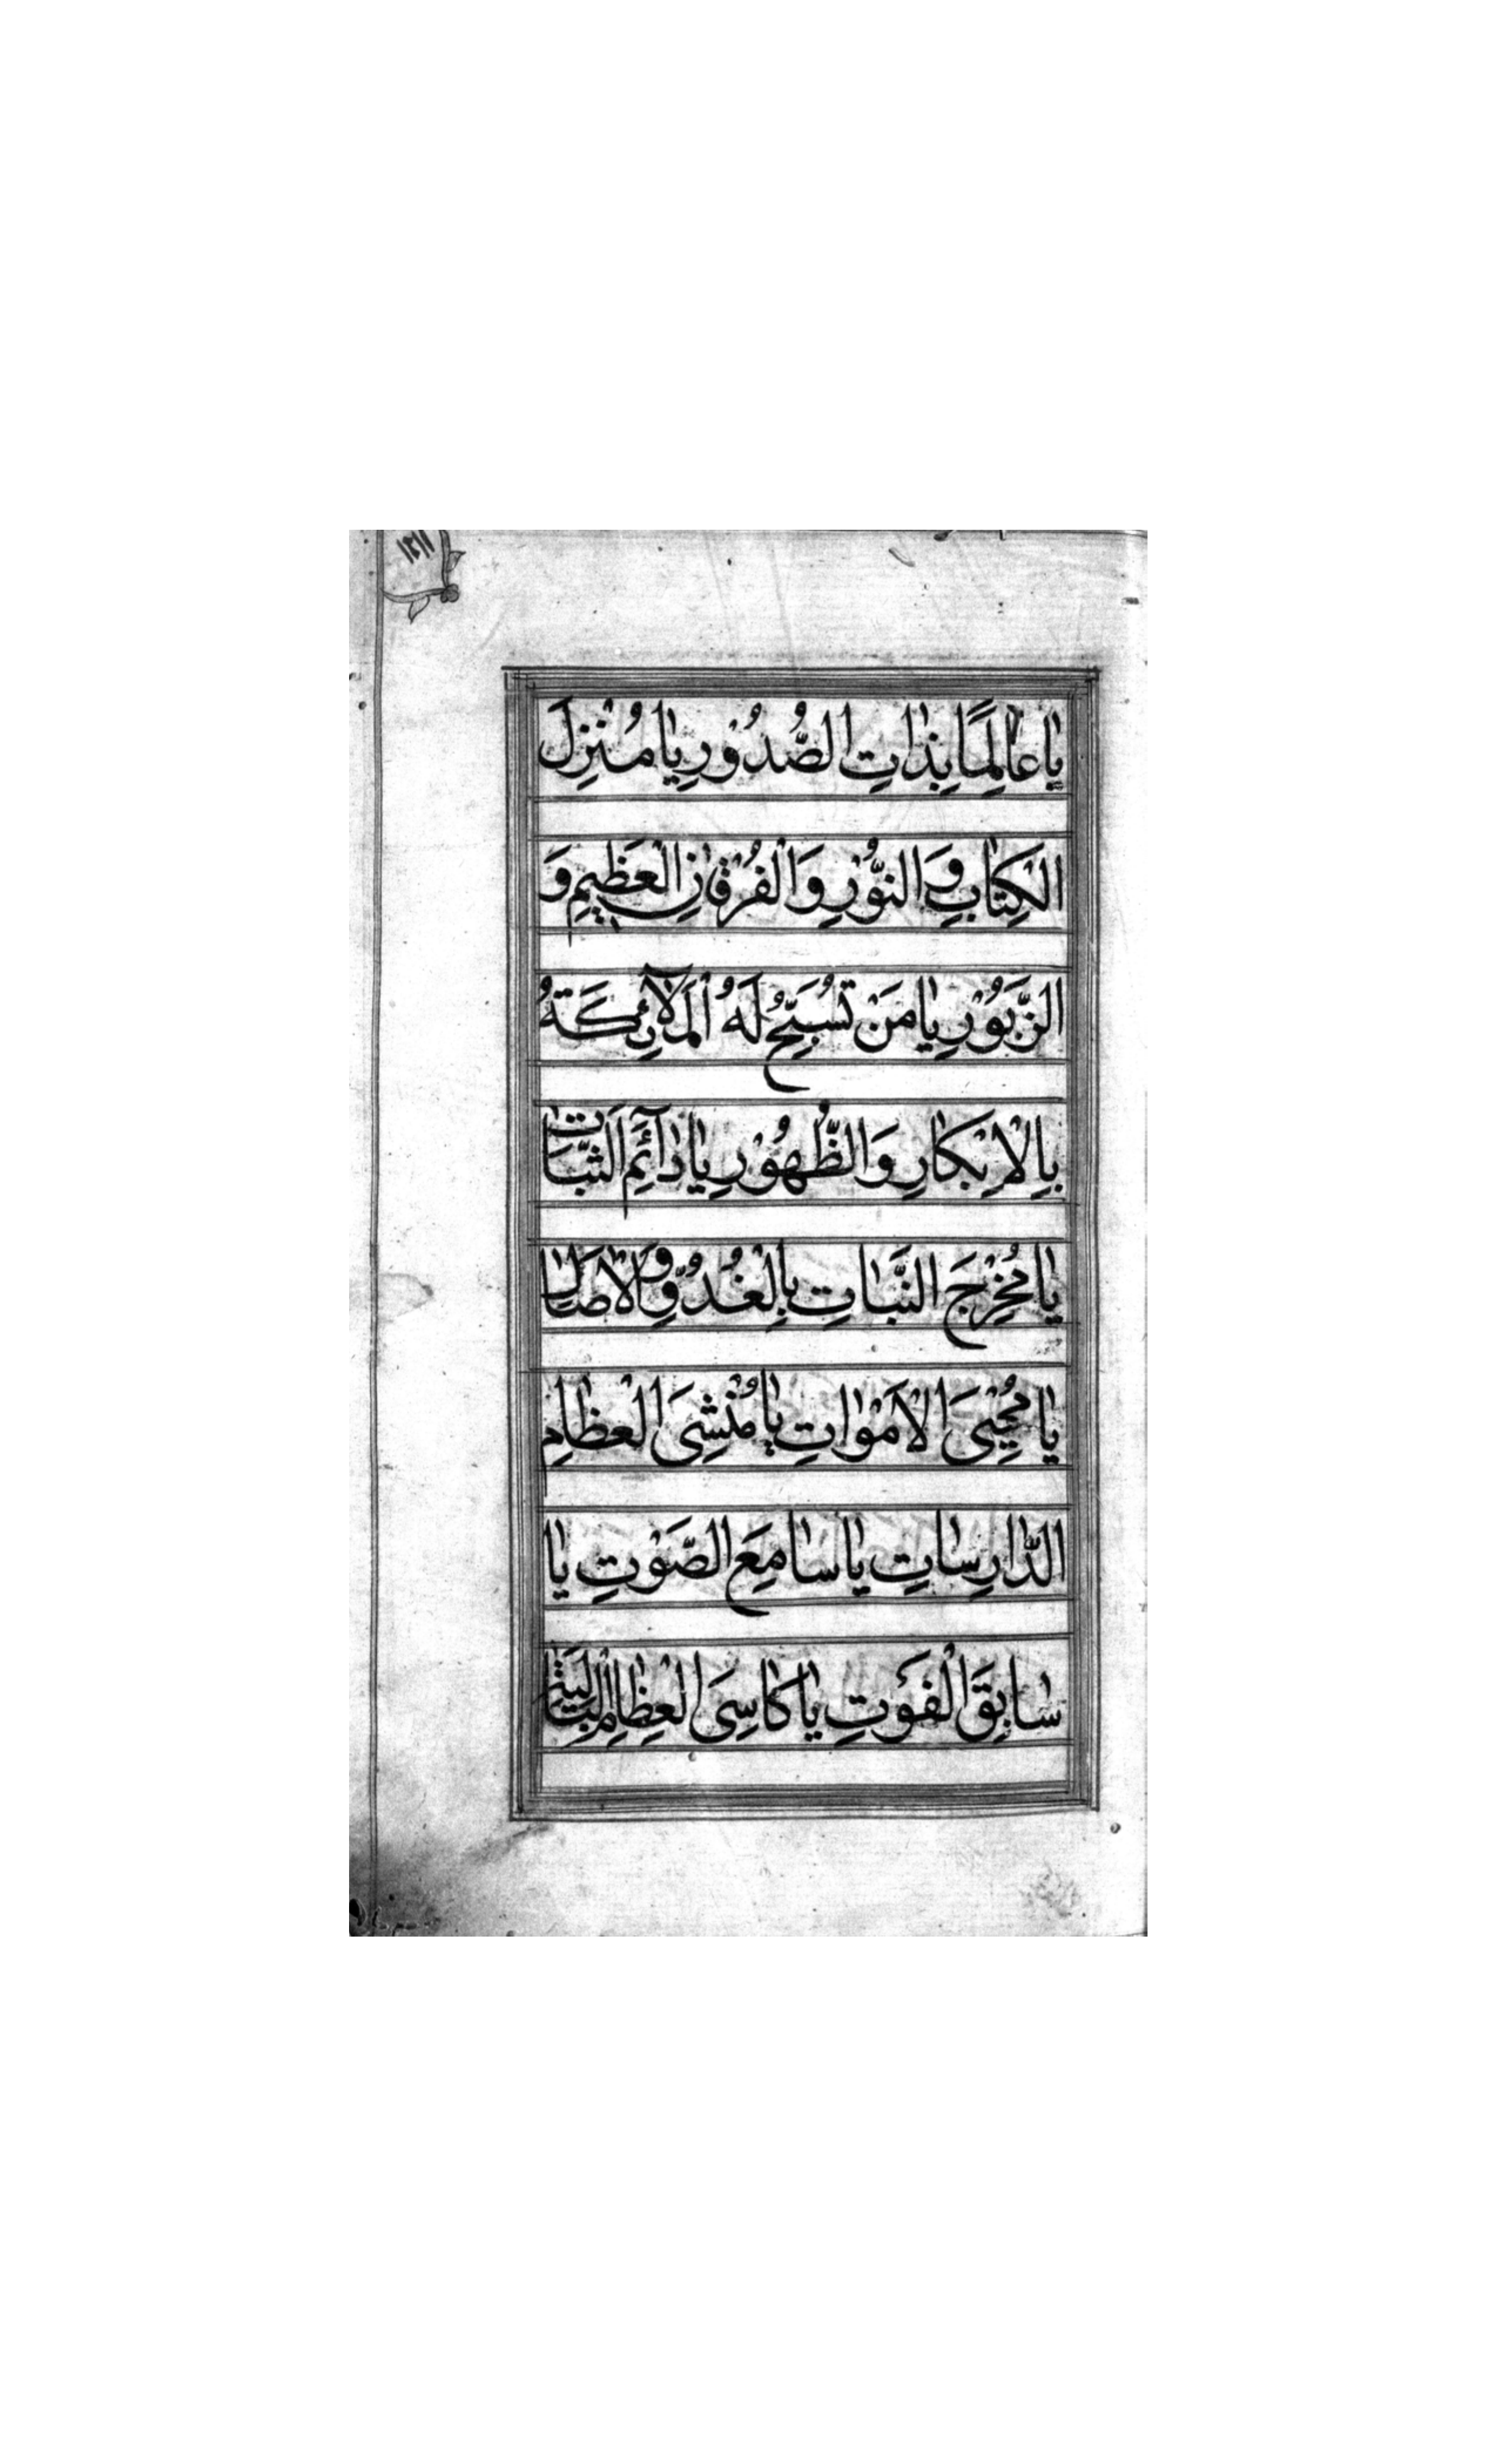 ۱۲۱۱
يَا عَالِمًا بِذَاتِ الصُّدُوْرِ يَا مُنْزِلَ
الْكِتَابِ وَ النُّوْرِ وَالْفُرْقَانِ الْعَظِيْمِ وَ
الزَّبُوْرِ يَا مَنْ تُسَبِّحُ لَهُ الْمَلَآئِكَةُ
بِالْاِبْكَارِ وَالظُّهُوْرِ يَا دَآئِمَ الثَّبَاتِ
يَا مُخْرِجَ النَّبَاتِ بِالْغُدُوِّ وَ الْاٰصَالِ
يَا مُحْيِيَ الْاَمْوَاتِ يَا مُنْشِئَ الْعِظَامِ
الدَّارِسَاتِ يَا سَامِعَ الصَّوْتِ يَا
سَابِقَ الْفَوْتِ يَا كَاسِيَ الْعِظَامِ الْبَالِيَةِ